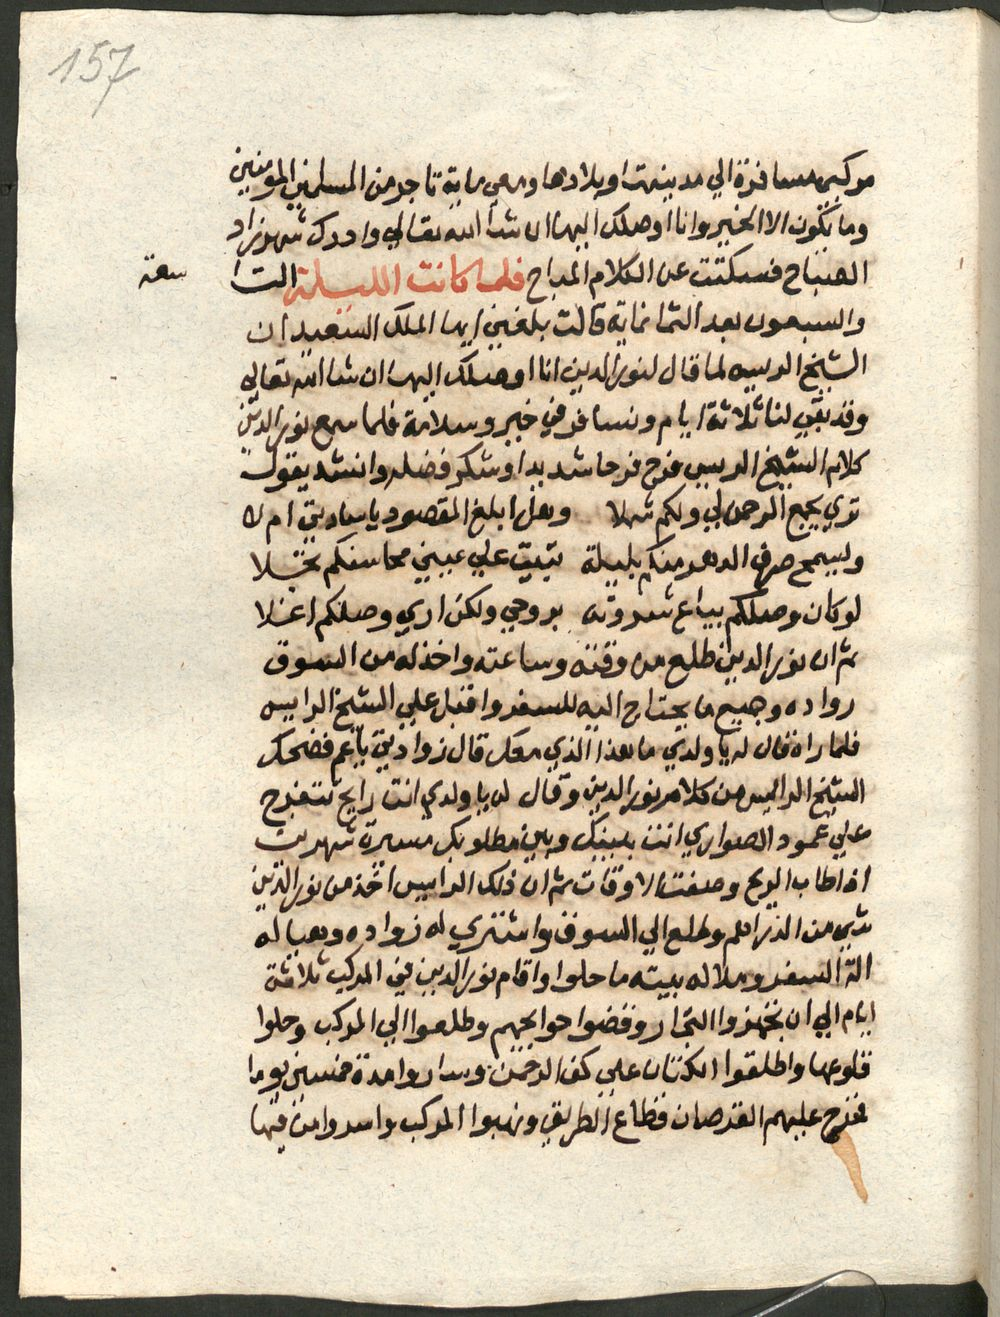 157
مركبي مسافرة الي مدينتها وبلادها ومعي ماية تاجر من المسلمين المومنين
وما يكون الا الخير وانا اوصلك اليها ان شا الله تعالي وادرك شهرزاد
الصباح فسكتت عن الكلام المباح فلما كانت الليلة التا سعة
والسبعون بعد الثمانماية قالت بلغني ايها الملك السعيد ان
الشيخ الريس لما قال لنور الدين انا اوصلك اليها ان شا الله تعالي
وقد بقي لنا ثلاثة ايام ونسافر في خير وسلامة فلما سمع نور الدين
كلام الشيخ الريس فرح فرحا شديدا وشكر فضله وانشد يقول
تري يجمع الرحمن لي ولكم شملا وهل ابلغ المقصود يا سادتي ام لا
ويسمح صرف الدهر منكم بليلة علي عيني محاسنكم بخلا
لو كان وصلكم يباع شروته بروحي ولكن اري وصلكم اغلا
ثم ان نور الدين طلع من وقته وساعته واخذ له من السوق
زواده وجميع ما يحتاج اليه للسفر واقبل علي الشيخ الرايس
فلما راه قال له يا ولدي ما هذا الذي معك قال زوادتي يا عم فضحك
الشيخ الرايس من كلام نور الدين وقال له يا ولدي انت رايح تتفرج
علي عمود الصواري انت بينك وبين مطلوبك مسيرة شهرين
اذا طاب الريح وصفت الاوقات ثم ان ذلك الرايس اخذ من نور الدين
شي من الدراهم وطلع الي السوق واشتري له زواده وهيا له
الة السفر وملا له بيته ما حلوا واقام نور الدين في المركب ثلاثة
ايام الي ان تجهزوا التجار وقضوا حوايجهم وطلعوا الي المركب وحلوا
قلوعها واطلقوا الكتان علي كف الرحمن وساروا مدة خمسين يوما
فخرج عليهم القرصان قطاع الطريق ونهبوا المركب واسروا من فيها